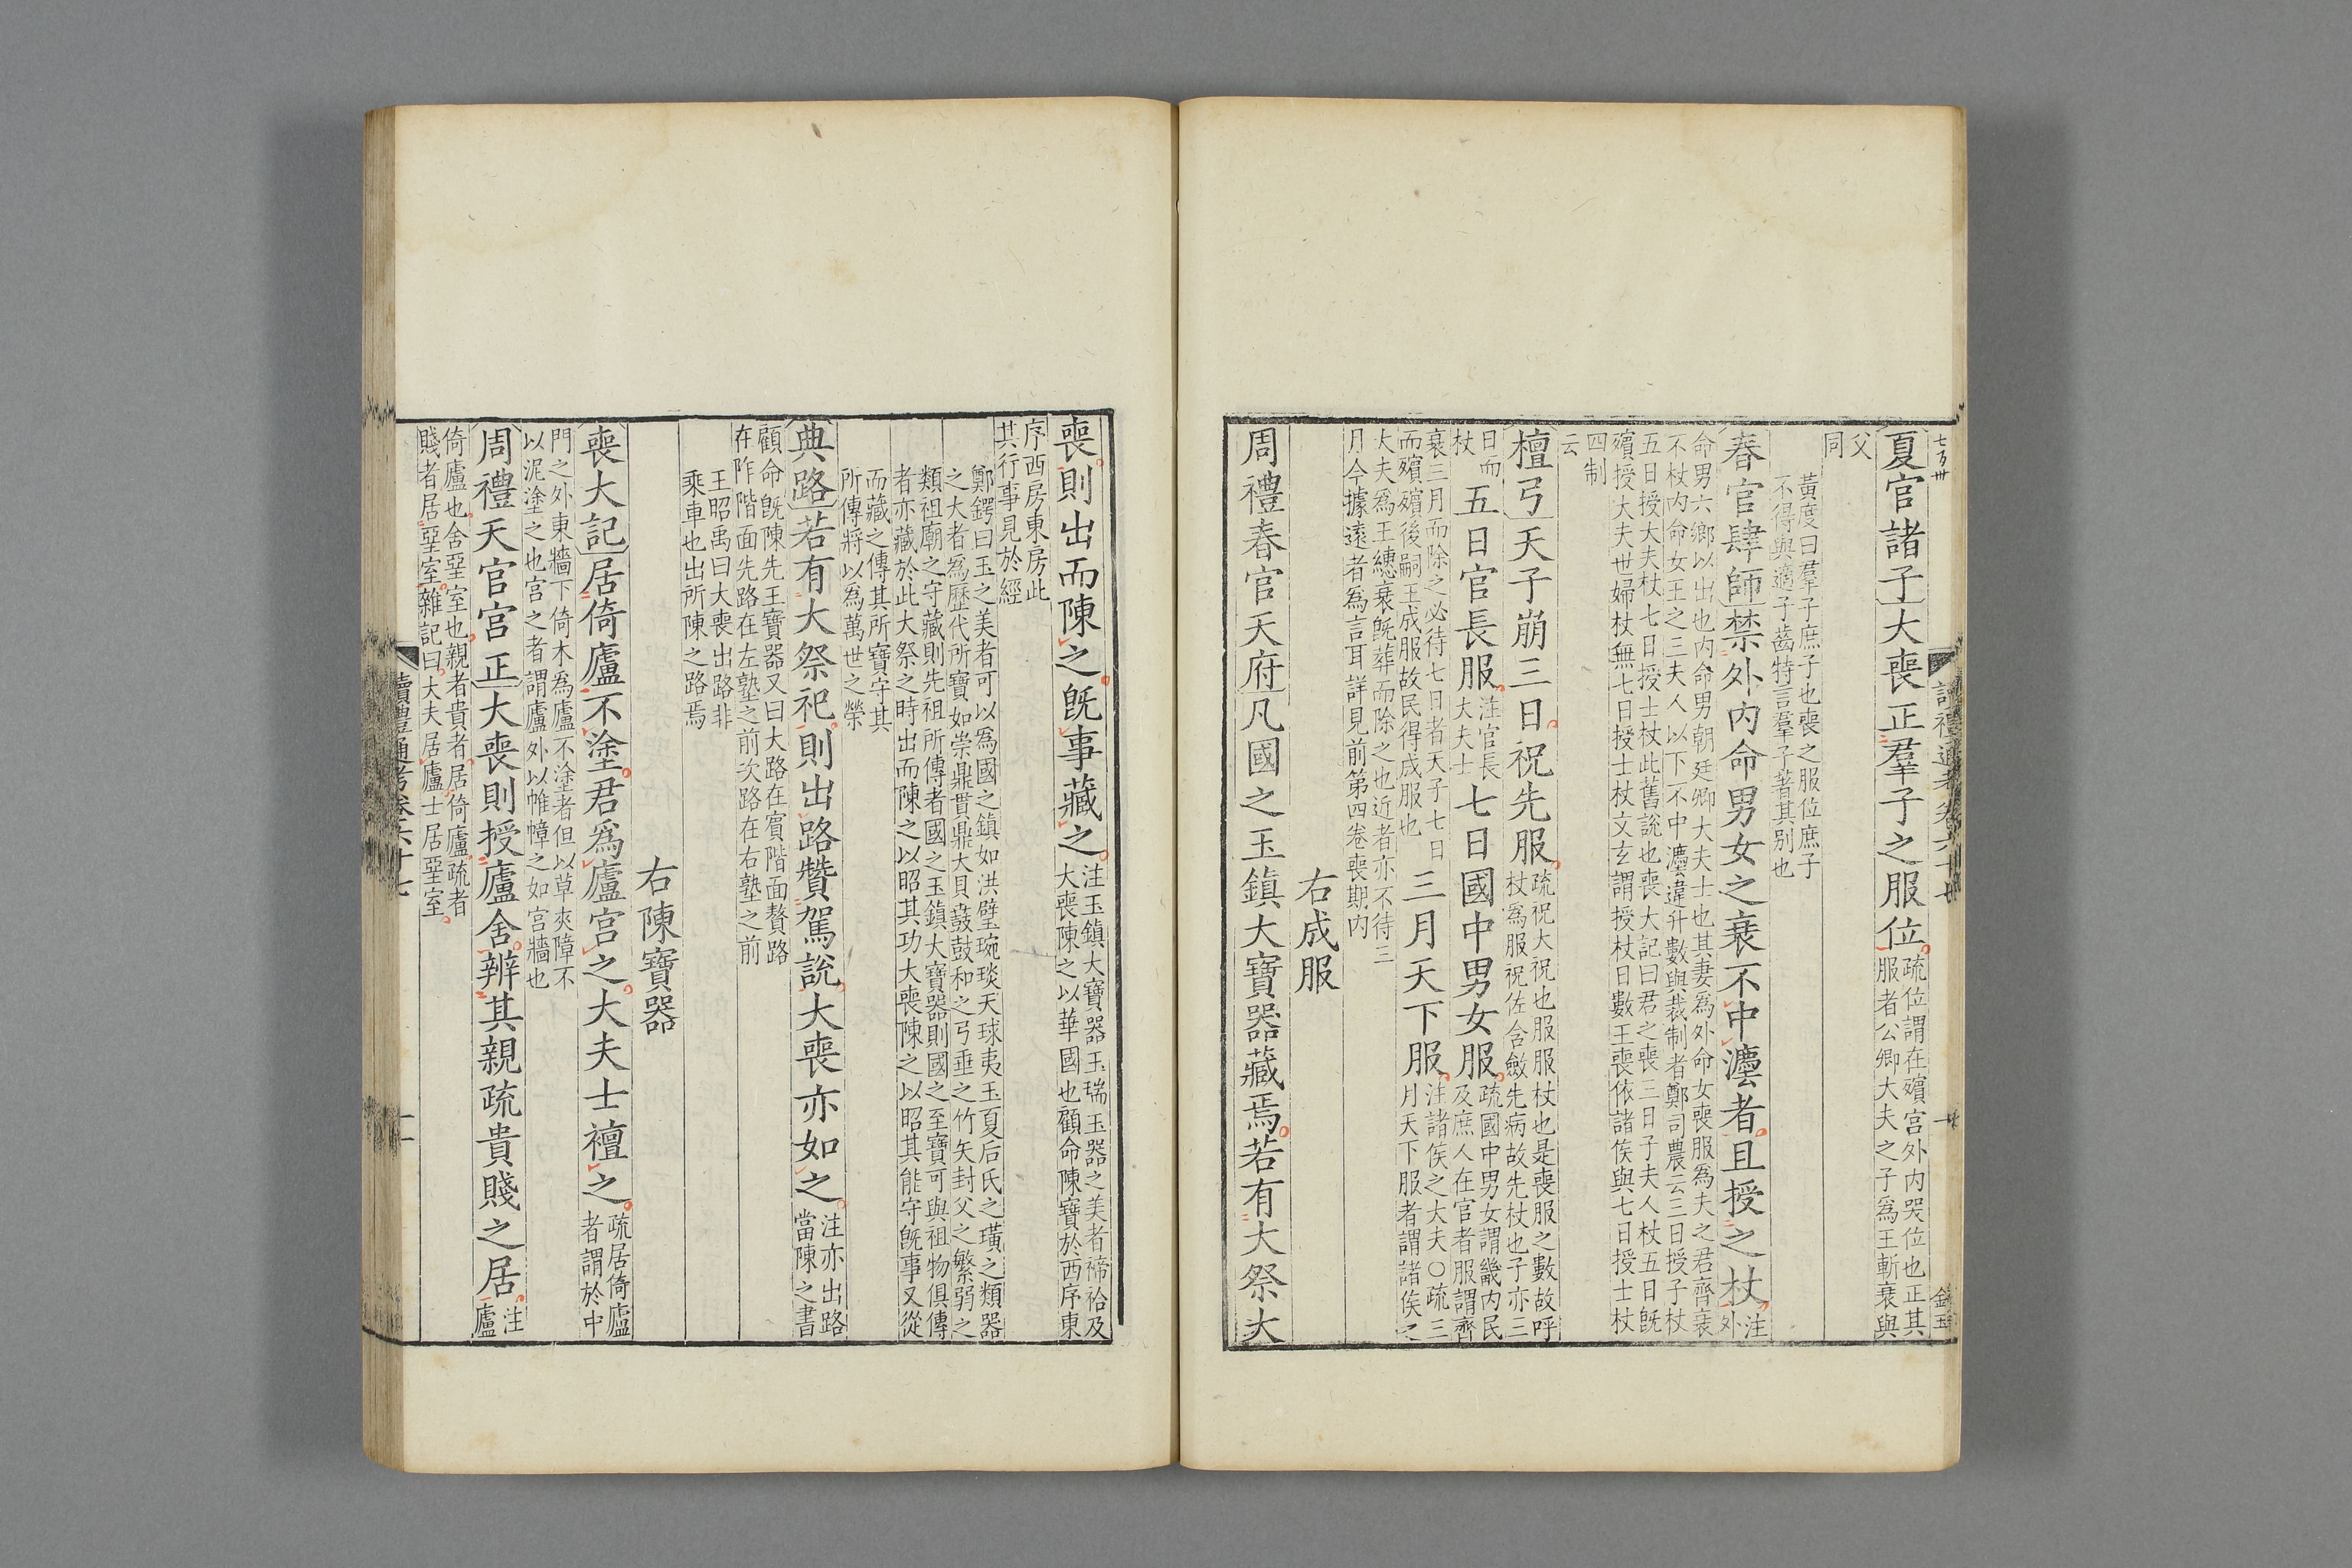 夏官諸子大喪正羣子之服位疏位謂在殯宮外內哭位也正其服者公卿大夫之子爲王斬衰與
父同
黃度曰羣子庶子也喪之服位庶子不得與適子齒特言羣子著其別也
春官肆師禁外內命男女之衰不中灋者且授之杖注外
命男六鄉以出也內命男朝廷卿大夫士也其妻爲外命女喪服爲夫之君齊衰不杖內命女王之三夫人以下不中灋違升數與裁制者鄭司農云三日授子杖
五日授大夫杖七日授士杖此舊說也喪大記曰君之喪三日子夫人杖五日旣殯授大夫世婦杖無七日授士杖文玄謂授杖日數王喪依諸侯與七日授士杖
四制云
檀弓天子崩三日祝先服疏祝大祝也服服杖也是喪服之數故呼杖爲服祝佐含斂先病故先杖也子亦三
日而杖五日官長服注官長大夫士七日國中男女服疏國中男女謂畿內民及庶人在官者服謂齊
衰三月而除之必待七日者天子七日而殯殯後嗣王成服故民得成服也三月天下服注諸侯之大夫○疏三月天下服者謂諸侯之
大夫爲王繐衰旣葬而除之也近者亦不待三月今據遠者爲言耳詳見前第四卷喪期內
右成服
周禮春官天府凡國之玉鎮大寶器藏焉若有大祭大
喪則出而陳之旣事藏之注玉鎮大寶器玉瑞玉器之美者禘祫及大喪陳之以華國也顧命陳寶於西序東
序西房東房此其行事見於經
鄭鍔曰玉之美者可以爲國之鎮如洪璧琬琰天球夷玉夏后氏之璜之類器之大者爲歷代所寶如崇鼎貫鼎大貝鼖鼓和之弓垂之竹矢封父之繁弱之
類祖廟之守藏則先祖所傳者國之玉鎮大寶器則國之至寶可與祖物俱傳者亦藏於此大祭之時出而陳之以昭其功大喪陳之以昭其能守旣事又從
而藏之傳其所寶守其所傳將以爲萬世之榮
典路若有大祭祀則出路贊駕說大喪亦如之注亦出路當陳之書
顧命旣陳先王寶器又曰大路在賓階面贅路在阼階面先路在左塾之前次路在右塾之前
王昭禹曰大喪出路非乘車也出所陳之路焉
右陳寶器
喪大記居倚廬不塗君爲廬宮之大夫士襢之疏居倚廬者謂於中
門之外東牆下倚木爲廬不塗者但以草夾障不以泥塗之也宮之者謂廬外以帷幛之如宮牆也
周禮天官宮正大喪則授廬舍辨其親疏貴賤之居注廬
倚廬也舍堊室也親者貴者居倚廬疏者賤者居堊室雜記曰大夫居廬士居堊室
讀禮通考卷六十七